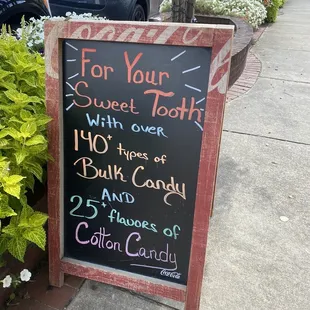 Coca-Cola
For Your
Sweet Tooth
With over
140+ types of
Bulk Candy
AND
25+ flavors of
Cotton Candy
Coca-Cola